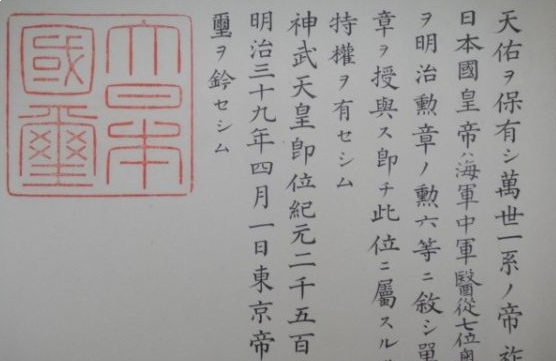 天佑ヲ保有シ萬世一系ノ帝祚
日本國皇帝ハ海軍中軍醫從七位奥
ヲ明治勲章ノ勲六等ニ敘シ單
章ヲ授與ス即チ此位ニ屬スル
特權ヲ有セシム
神武天皇即位紀元二千五百
明治三十九年四月一日東京帝
璽ヲ鈐セシム
大日本國璽